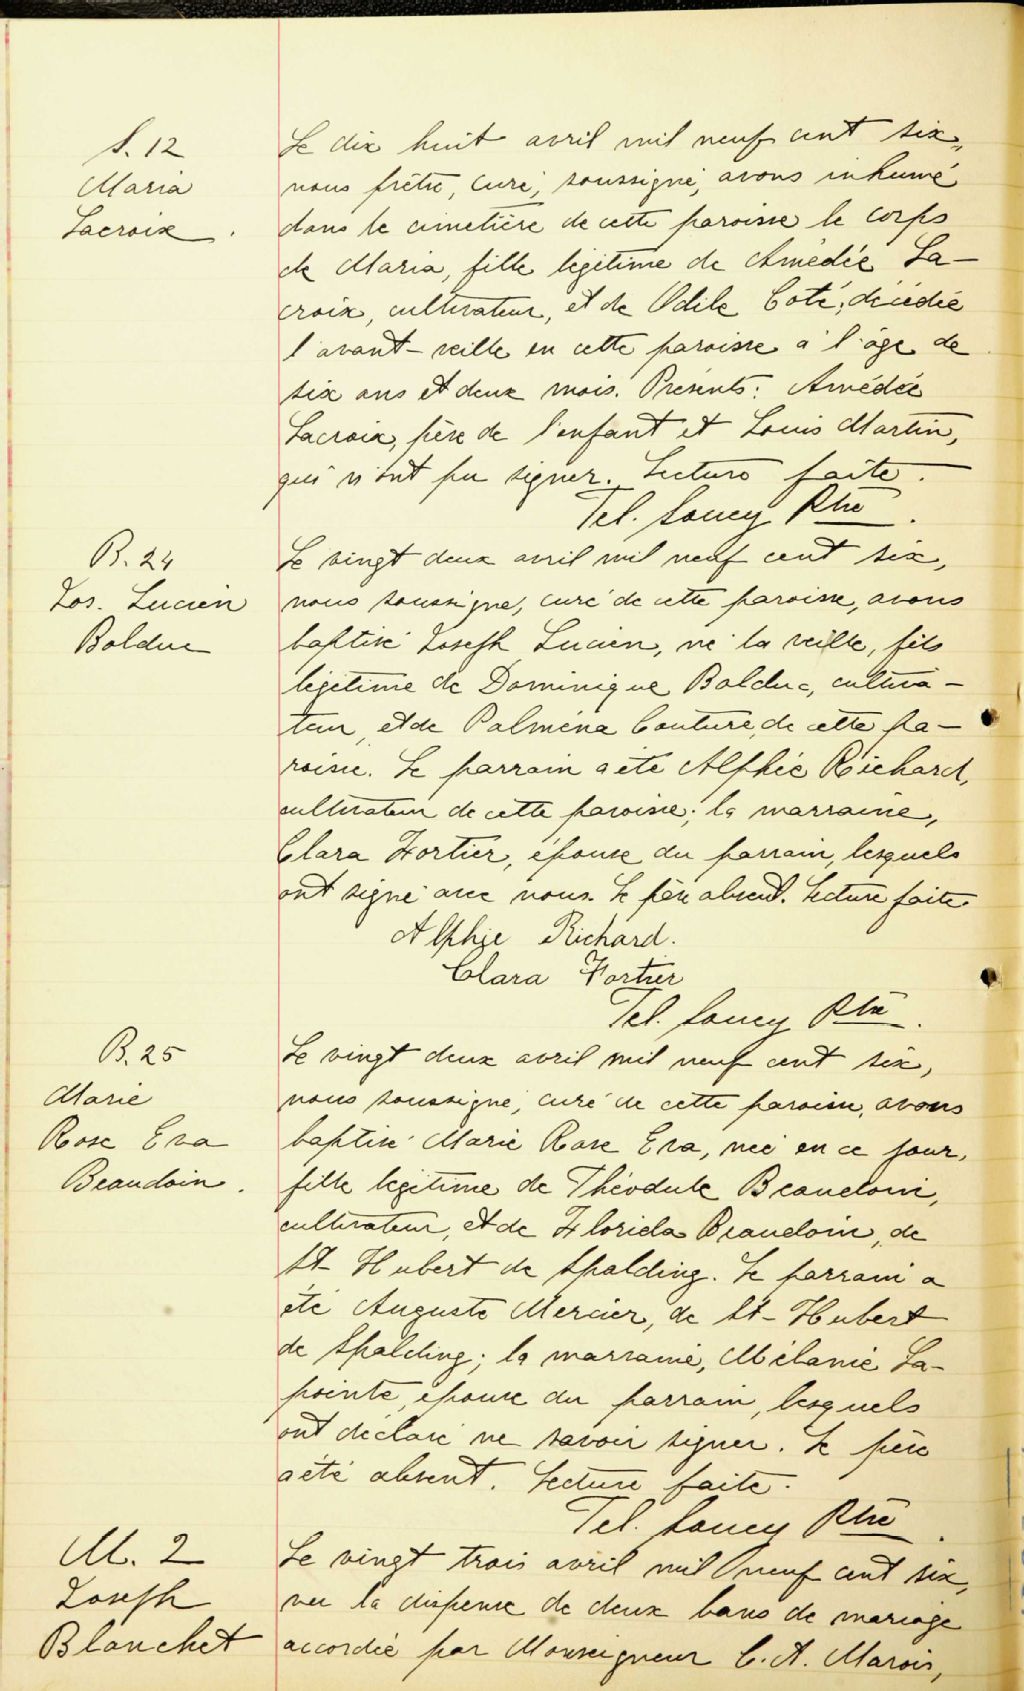 S. 12
Maria
Lacroix.
Le dix huit avril mil neuf cent six,
nous prêtre, curé, soussigné, avons inhumé
dans le cimetière de cette paroisse le corps
de Maria, fille légitime de Amédée La-
croix, cultivateur, et de Odile Coté, décédée
l'avant-veille en cette paroisse à l'âge de
six ans et deux mois. Présents: Amédée
Lacroix, père de l'enfant et Louis Martin,
qui n'ont pu signer. Lecture faite.
Tel. Soucy Ptre.
B. 24
Jos. Lucien
Bolduc
Le vingt deux avril mil neuf cent six,
nous soussigné, curé de cette paroisse, avons
baptisé Joseph Lucien, né la veille, fils
légitime de Dominique Bolduc, cultiva-
teur, et de Palména Couture, de cette pa-
roisse. Le parrain a été Alphée Richard,
cultivateur de cette paroisse; la marraine,
Clara Fortier, épouse du parrain, lesquels
ont signé avec nous. Le père absent. Lecture faite.
Alphie Richard.
Clara Fortier
Tel. Soucy Ptre.
B. 25
Marie
Rose Eva
Beaudoin.
Le vingt deux avril mil neuf cent six,
nous soussigné, curé de cette paroisse, avons
baptisé Marie Rose Eva, née en ce jour,
fille légitime de Théodule Beaudoin,
cultivateur, et de Florida Beaudoin, de
St Hubert de Spalding. Le parrain a
été Auguste Mercier, de St-Hubert
de Spalding; la marraine, Mélanie La-
pointe, épouse du parrain, lesquels
ont déclaré ne savoir signer. Le père
a été absent. Lecture faite.
Tel. Soucy Ptre.
M. 2
Joseph
Blanchet
Le vingt trois avril mil neuf cent six,
vu la dispense de deux bans de mariage
accordée par Monseigneur C. A. Marois,